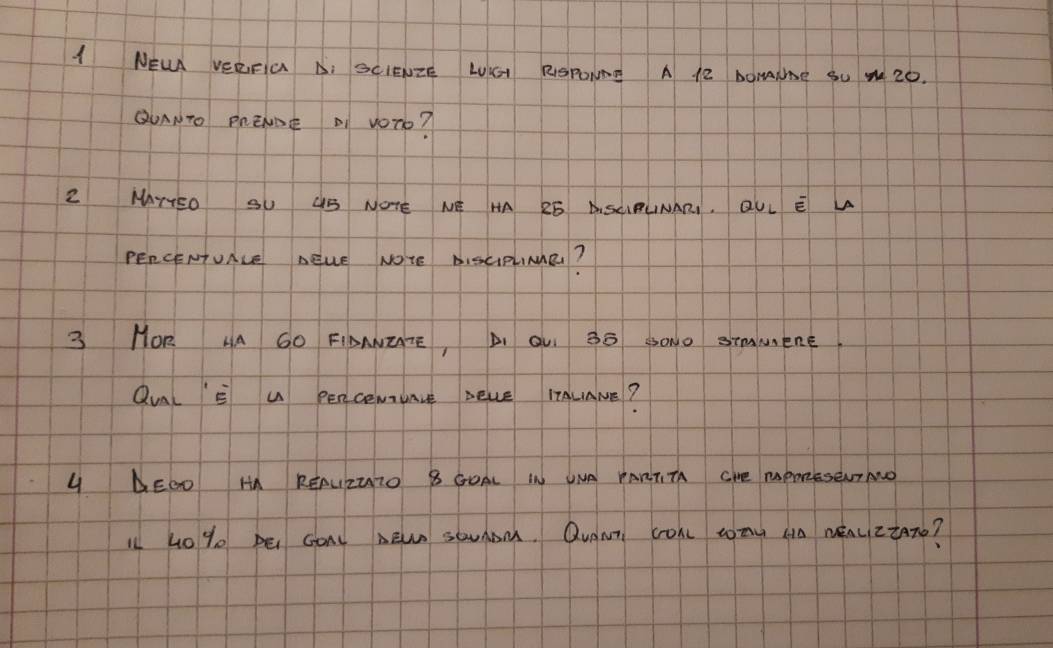 1 NELLA VERIFICA DI SCIENZE LUIGI RISPONDE A 12 DOMANDE SU 20.
QUANTO PRENDE DI VOTO?
2 MATTEO SU 45 NOTE NE HA 25 DISCIPLINARI. QUL È LA
PERCENTUALE DELLE NOTE DISCIPLINARI?
3 MOR HA 60 FIDANZATE, DI QUI 35 SONO STRANIERE.
QUAL'È LA PERCENTUALE DELLE ITALIANE?
4 DEGO HA REALIZZATO 8 GOAL IN UNA PARTITA CHE RAPPRESENTANO
IL 40% DEI GOAL DELLA SQUADRA. QUANTI GOAL TOTALI HA REALIZZATO?